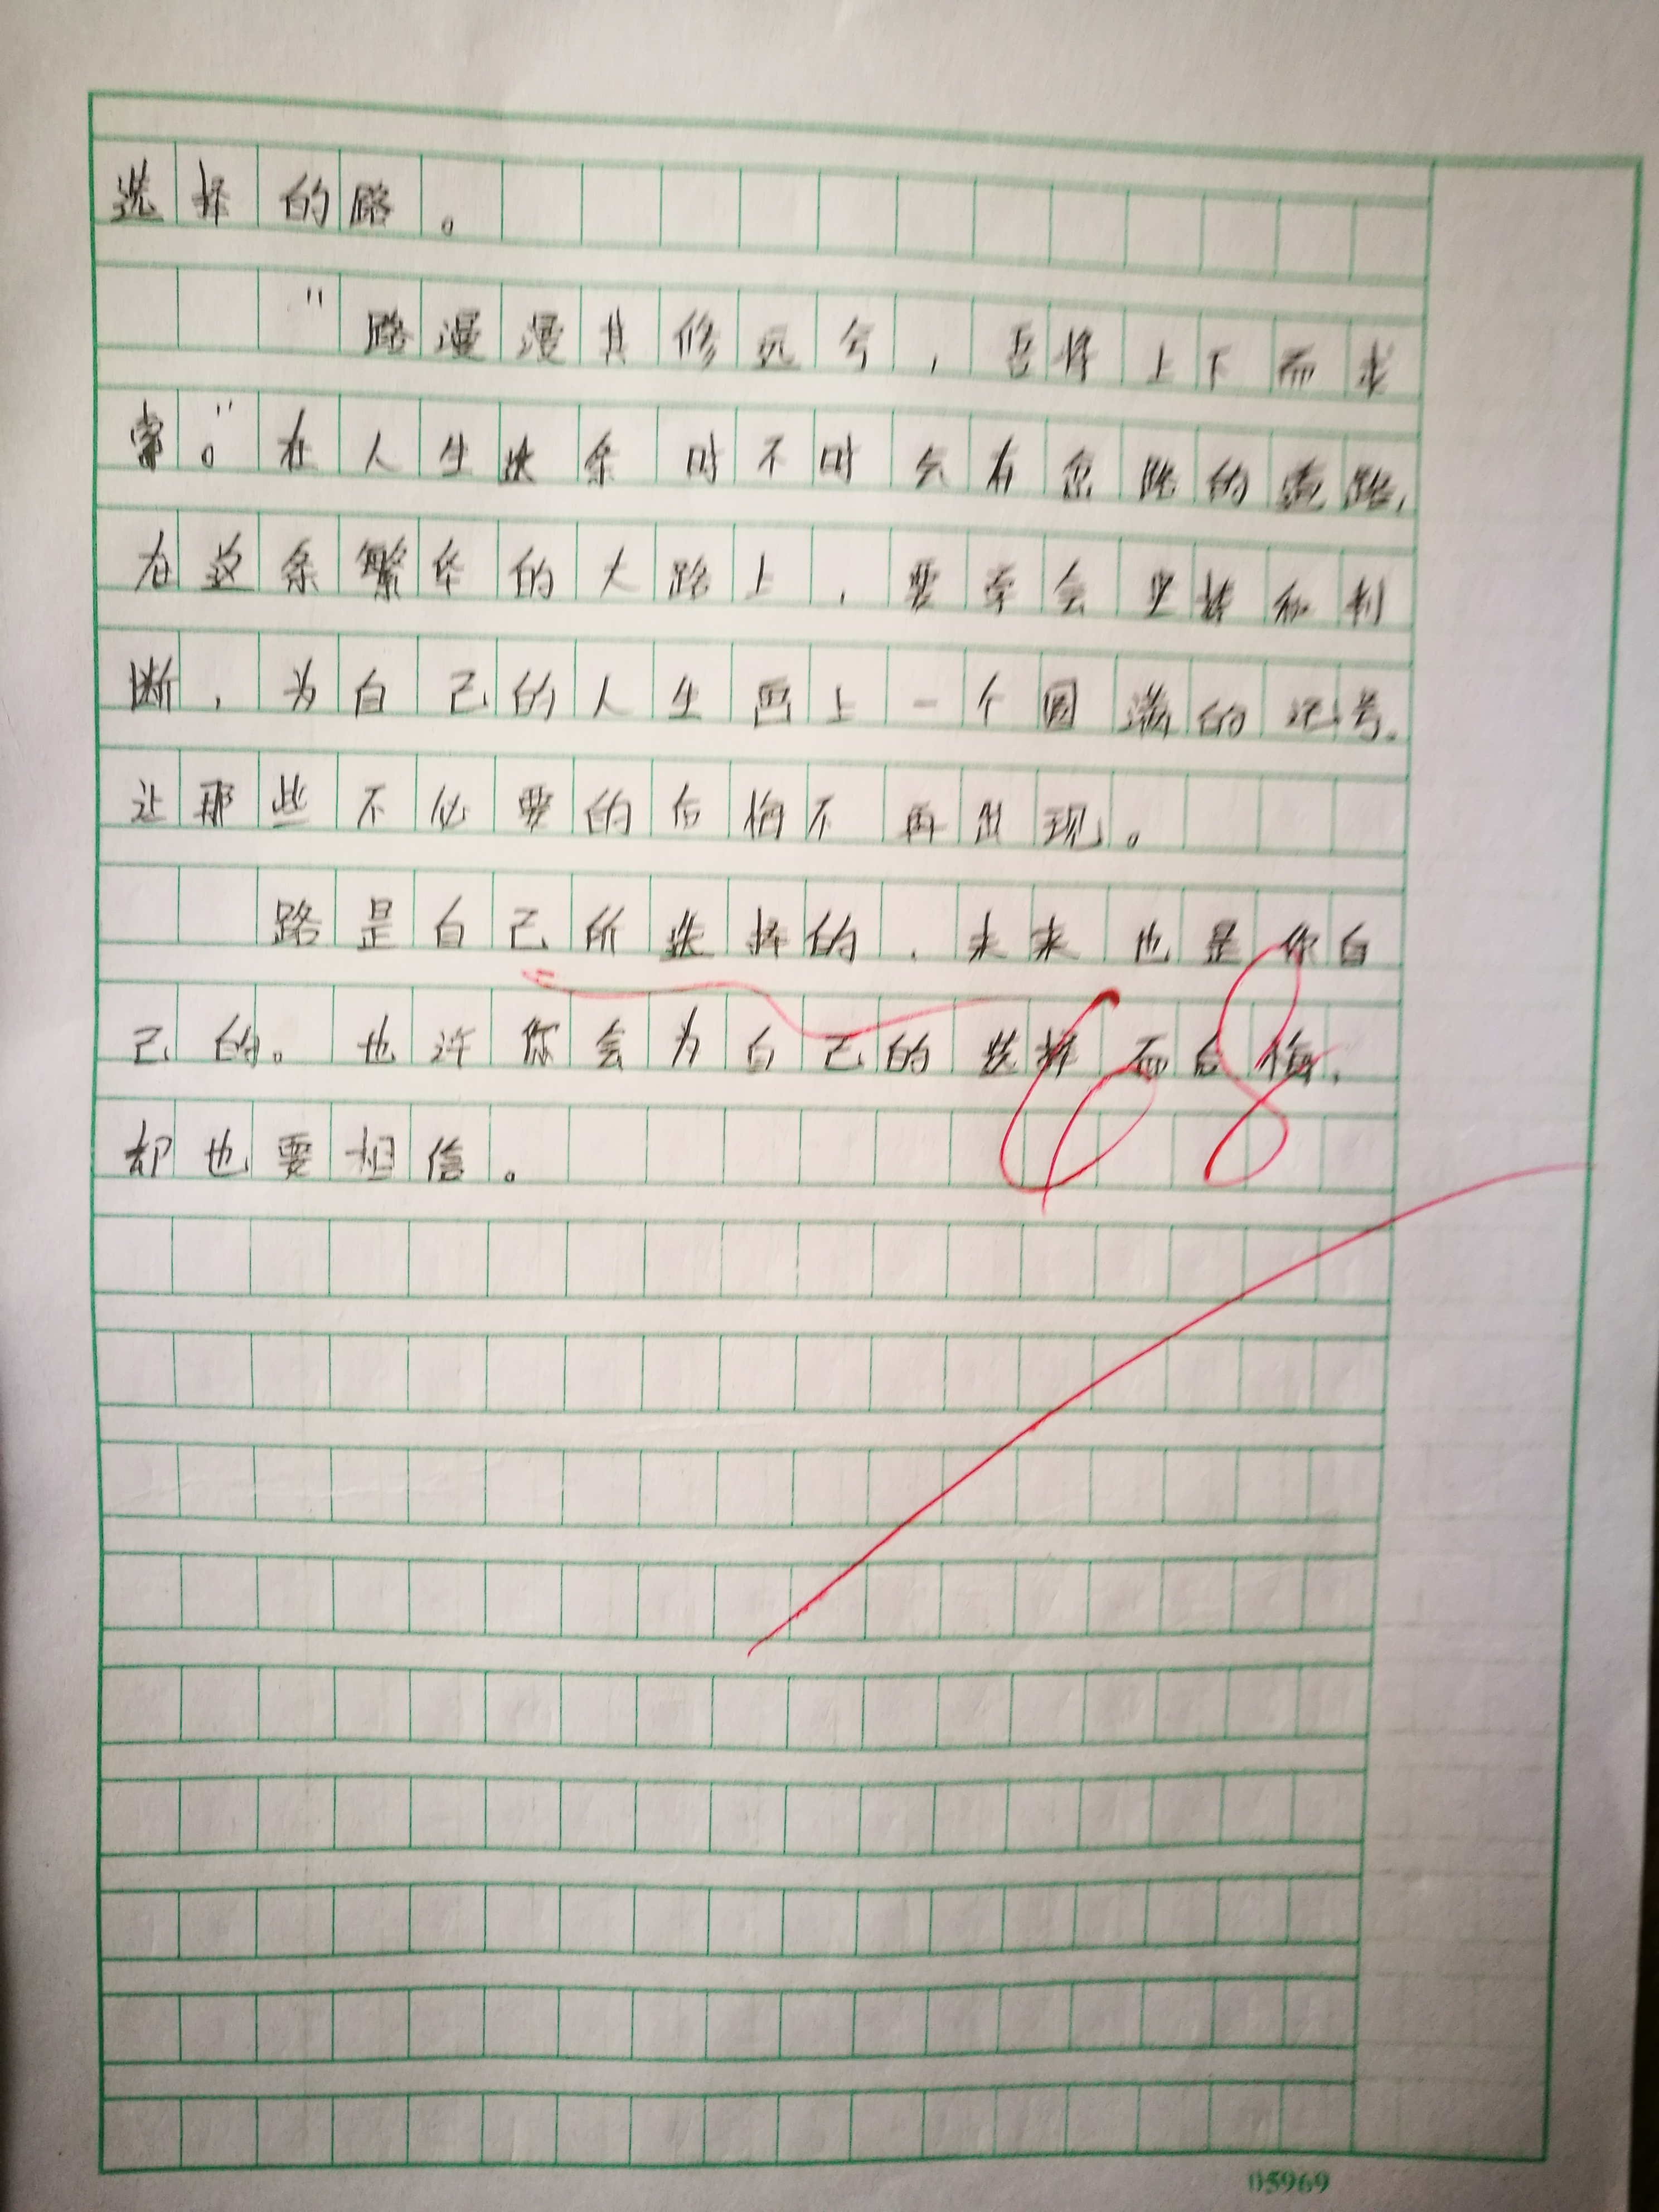 选择的路。
"路漫漫其修远兮，吾将上下而求
索。"在人生这条时不时会有忽略的道路，
在这条繁华的大路上，要学会坚持和判
断，为自己的人生画上一个圆满的记号。
让那些不必要的后悔不再出现。
路是自己所选择的，未来也是你自
己的。也许你会为自己的选择而后悔，
却也要相信。
68
05969